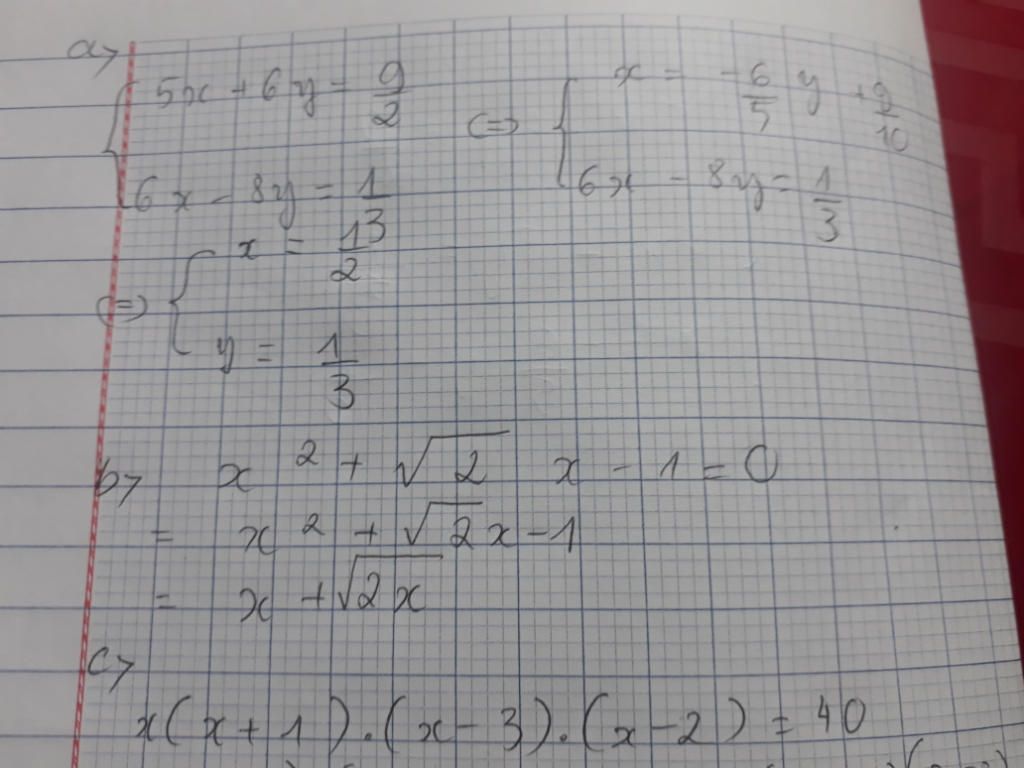 a) { 5x + 6y = 9/2 <=> { x = -6/5 y + 9/10
6x - 8y = 1/3 6x - 8y = 1/3
<=> { x = 1/2
y = 1/3
b) x² + √2 x - 1 = 0
= x² + √2x - 1
= x + √2x
c)
x(x+1).(x-3).(x-2) = 40